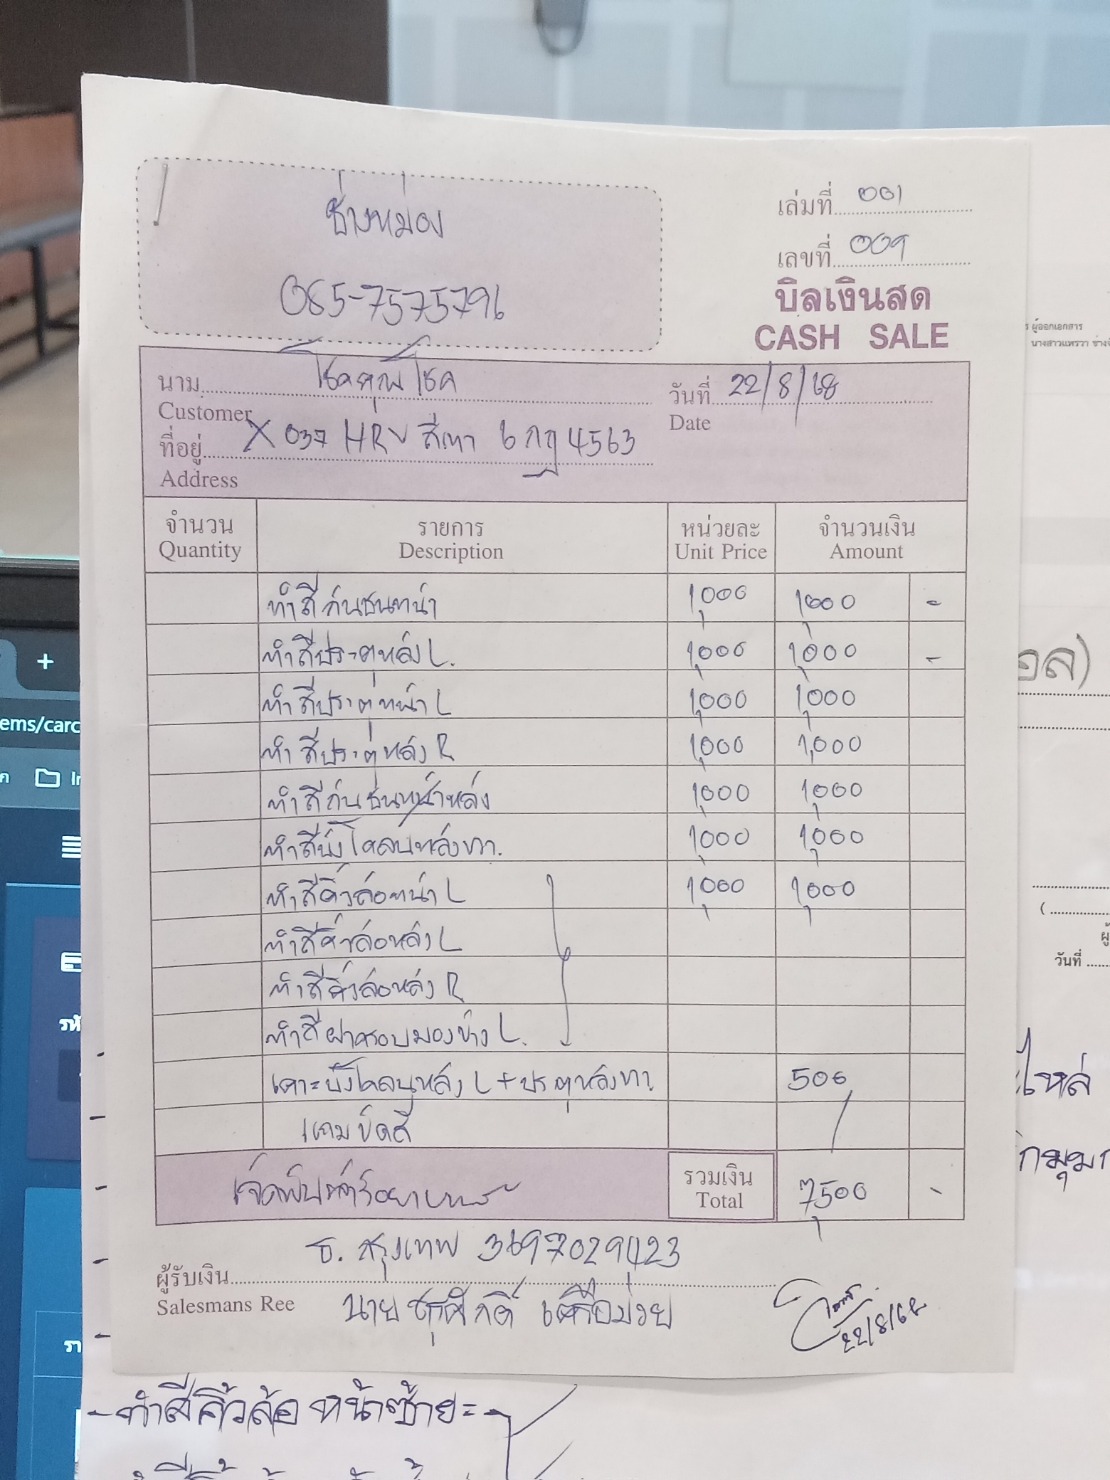 ช่างหม่อง
085-7575796
เล่มที่ 001
เลขที่ 009
บิลเงินสด
CASH SALE
นาม โชคคุณโชค
Customer
วันที่ 22/8/68
Date
ที่อยู่ X037 HRV สีเทา 6 กฎ 4563
Address
จำนวน รายการ หน่วยละ จำนวนเงิน
Quantity Description Unit Price Amount
ทำสีกันชนหน้า 1,000 1,000 -
ทำสีประตูหลัง L. 1,000 1,000 -
ทำสีประตูหน้า L 1,000 1,000
ทำสีประตูหลัง R 1,000 1,000
ทำสีกันชนหลัง 1,000 1,000
ทำสีบังโคลนหลังขวา. 1,000 1,000
ทำสีคิ้วล้อหน้า L 1,000 1,000
ทำสีคิ้วล้อหลัง L
ทำสีคิ้วล้อหลัง R
ทำสีฝาครอบมองข้าง L.
เคาะบังโคลนหลัง L + ประตูหลังขวา. 500
แถมขัดสี
เจ็ดพันห้าร้อยบาท
รวมเงิน 7,500 -
Total
ธ. กรุงเทพ 3697029423
ผู้รับเงิน
Salesmans Ree
นาย
22/8/68
+
ems/carc
ผู้ออกเอกสาร
อล)
วันที่
ไหล่
กมุม
- ทำสีคิ้วล้อ หน้าซ้าย = -